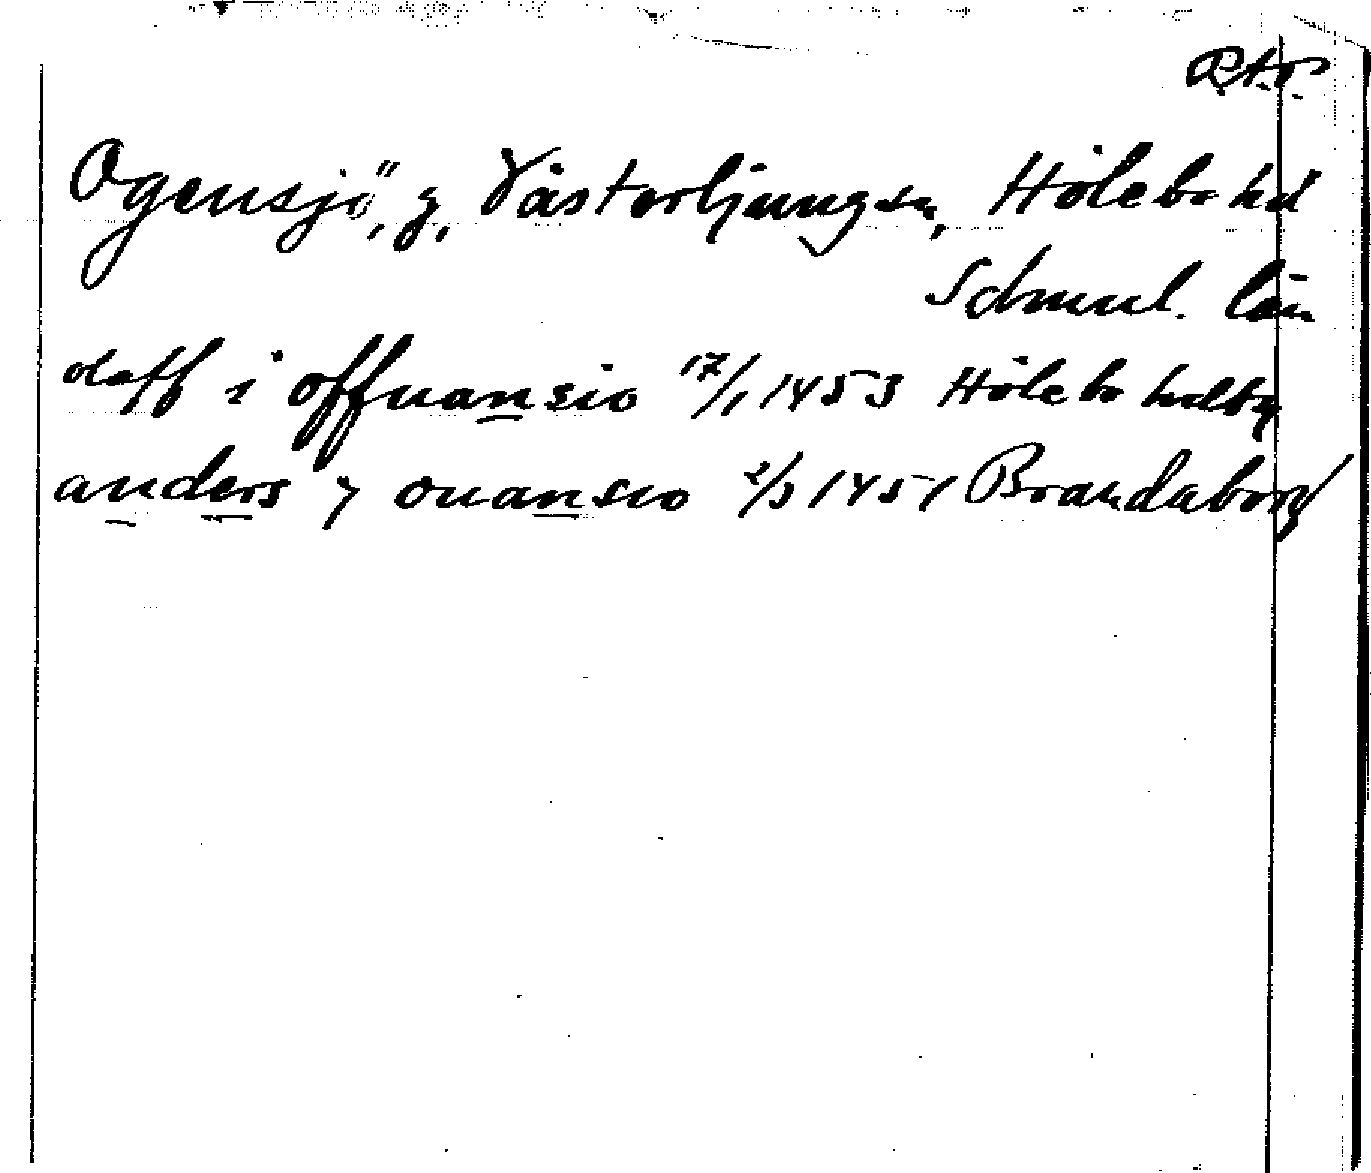 R.A.P.
Ogensjö, g, Västerljungsn, Hölebo hd
Sdmnl. län
olaff i offuansio 17/1 1453 Hölebo hdsty
anders y ouansio 2/3 1451 Brandaborg